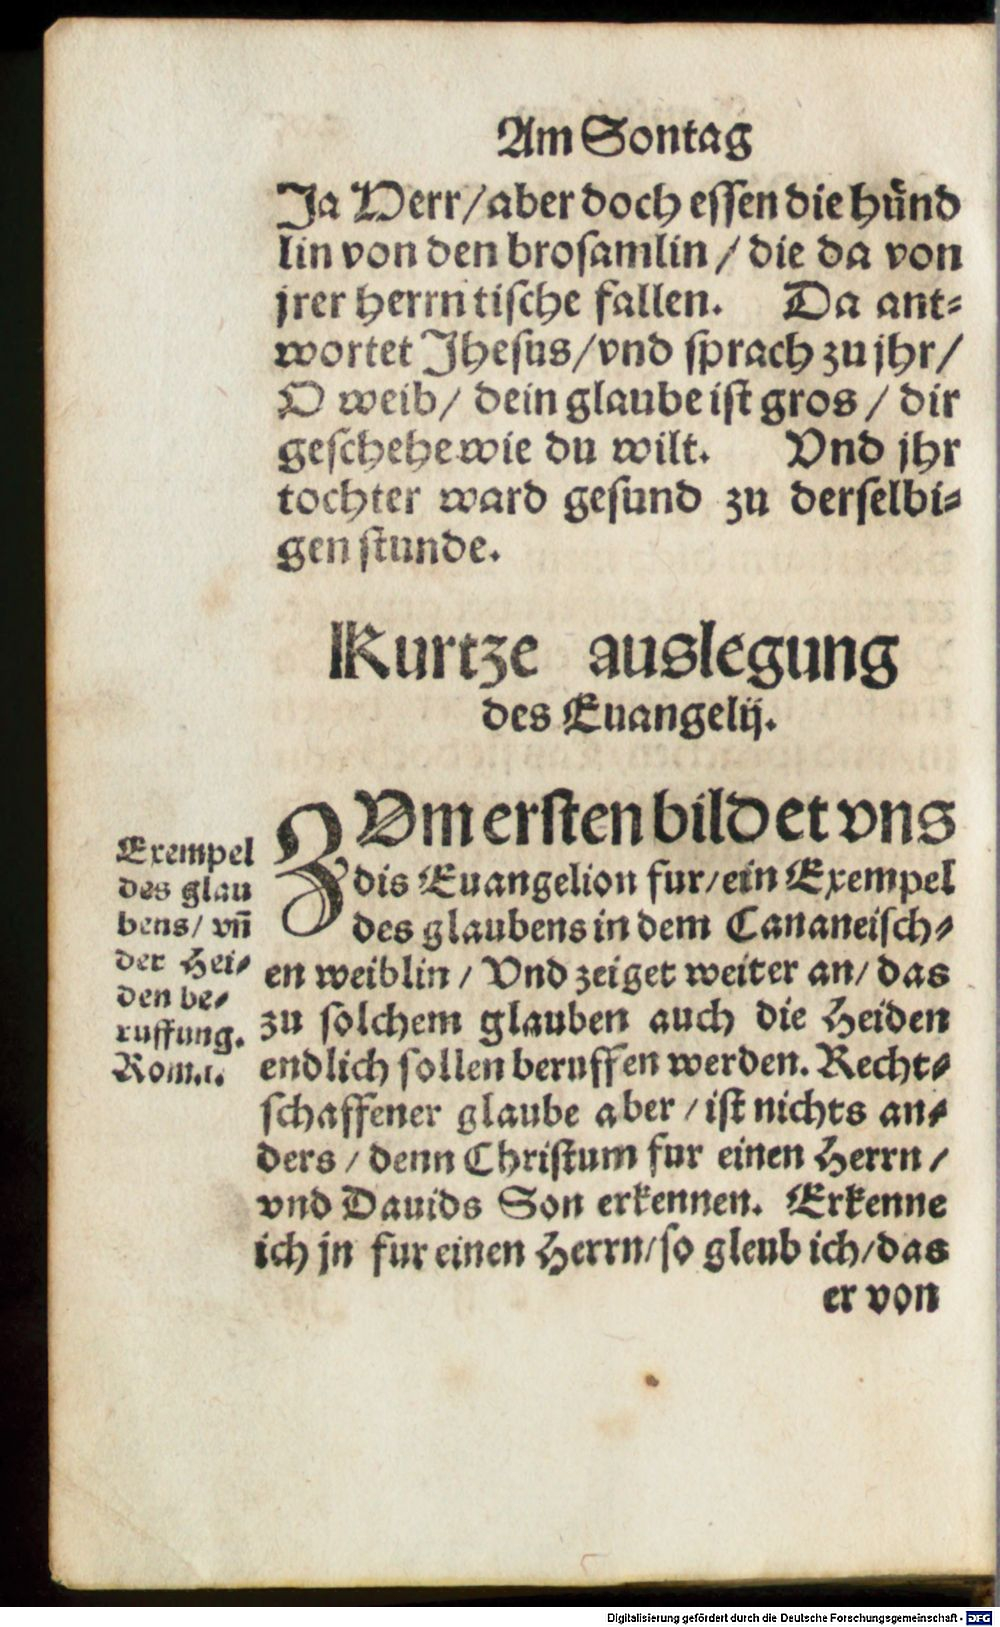 Am Sontag
Ja HErr/aber doch essen die hünd
lin von den brosamlin / die da von
jrer herrn tische fallen. Da ant-
wortet Jhesus/vnd sprach zu jhr/
O weib/ dein glaube ist gros / dir
geschehe wie du wilt. Vnd jhr
tochter ward gesund zu derselbi-
gen stunde.
Kurtze auslegung
des Euangelij.
ZVm ersten bildet vns
dis Euangelion fur/ein Exempel
des glaubens in dem Cananeisch-
en weiblin / Vnd zeiget weiter an/ das
zu solchem glauben auch die Heiden
endlich sollen beruffen werden. Recht-
schaffener glaube aber / ist nichts an-
ders / denn Christum fur einen Herrn /
vnd Dauids Son erkennen. Erkenne
ich jn fur einen Herrn/so gleub ich/das
er von
Exempel
des glau
bens/ vn̄
der Hei-
den be-
ruffung.
Rom.1.
Digitalisierung gefördert durch die Deutsche Forschungsgemeinschaft - DFG